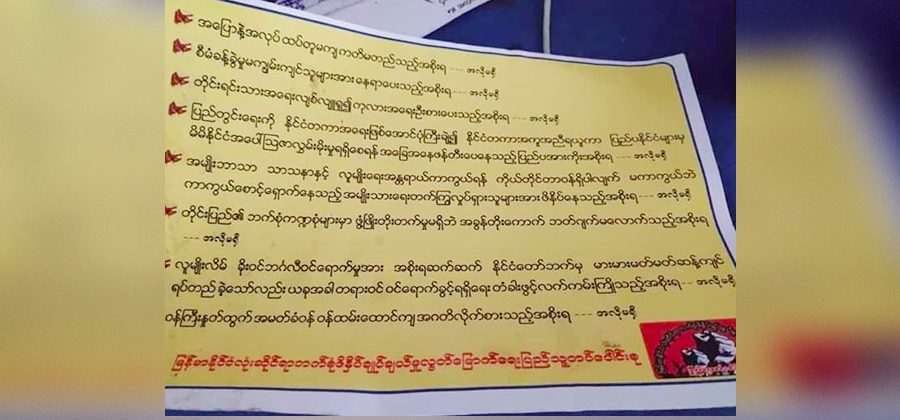 အပြောနဲ့အလုပ် ထပ်တူမကျ ကတိမတည်သည့်အစိုးရ --- အလိုမရှိ
စီမံခန့်ခွဲမှုမကျွမ်းကျင်သူများအား နေရာပေးသည့်အစိုးရ --- အလိုမရှိ
တိုင်းရင်းသားအရေးလျစ်လျူရှု၍ ကုလားအရေးဦးစားပေးသည့်အစိုးရ --- အလိုမရှိ
ပြည်တွင်းရေးကို နိုင်ငံတကာအရေးဖြစ်အောင်ပုံကြီးချဲ့၍ နိုင်ငံတကာအကူအညီရယူကာ ပြည်ပနိုင်ငံများမှ
မိမိနိုင်ငံအပေါ် ဩဇာလွှမ်းမိုးမှုရရှိစေရန် အခြေအနေဖန်တီးပေးနေသည့် ပြည်ပအားကိုးအစိုးရ --- အလိုမရှိ
အမျိုးဘာသာ သာသနာနှင့် လူမျိုးရေးအန္တရာယ်ကာကွယ်ရန် ကိုယ်တိုင်တာဝန်ရှိပါလျက် မကာကွယ်ဘဲ
ကာကွယ်စောင့်ရှောက်နေသည့် အမျိုးသားရေးတက်ကြွလှုပ်ရှားသူများအား ဖိနှိပ်နေသည့်အစိုးရ --- အလိုမရှိ
တိုင်းပြည်၏ ဘက်စုံကဏ္ဍစုံများမှာ ဖွံ့ဖြိုးတိုးတက်မှုမရှိဘဲ အခွန်တိုးကောက် ဘတ်ဂျက်မလောက်သည့်အစိုးရ
--- အလိုမရှိ
လူမျိုးလိမ် ခိုးဝင်ဘင်္ဂလီဝင်ရောက်မှုအား အစိုးရဆက်ဆက် နိုင်ငံတော်ဘက်မှ မားမားမတ်မတ်ဆန့်ကျင်
ရပ်တည်ခဲ့သော်လည်း ယခုအခါတရားဝင် ဝင်ရောက်ခွင့်ရရှိရေး တံခါးဖွင့်လက်ကမ်းကြိုသည့်အစိုးရ-- အလိုမရှိ
ဝန်ကြီးနှုတ်ထွက် အမတ်ခံဝန် ဝန်ထမ်းထောင်ကျ အဂတိလိုက်စားသည့်အစိုးရ --- အလိုမရှိ